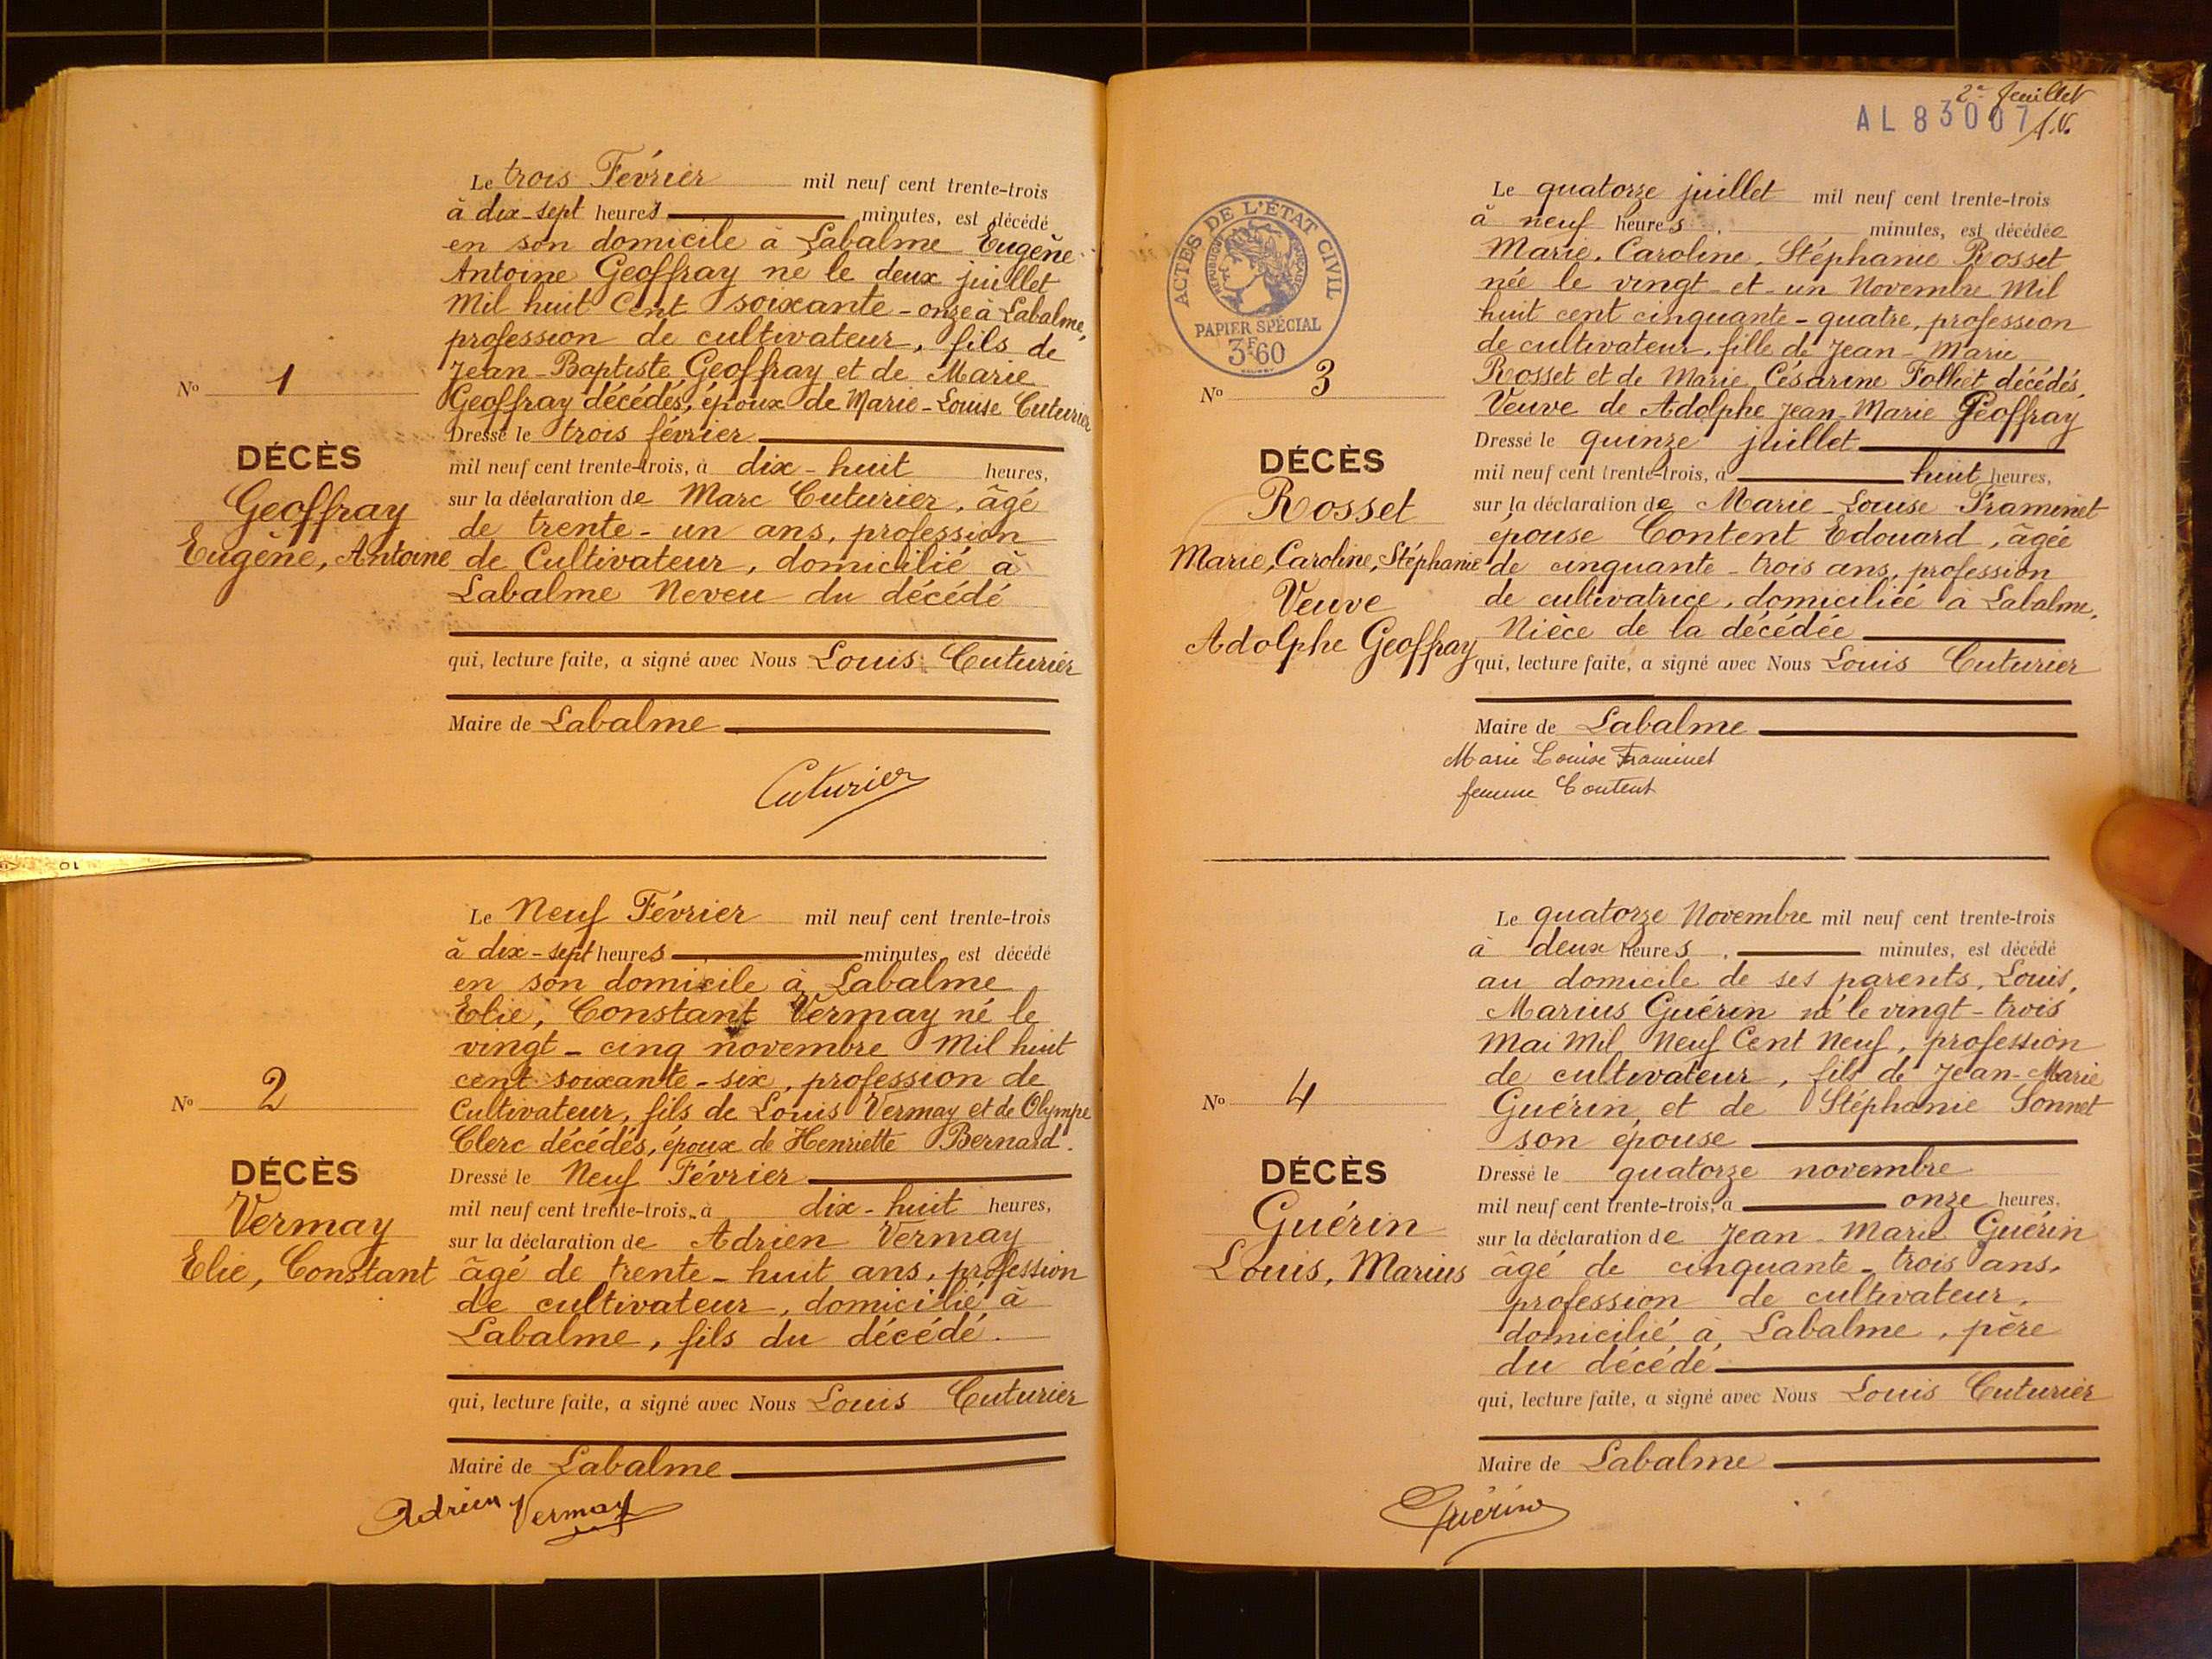 Le trois Février mil neuf cent trente-trois
à dix-sept heures minutes, est décédé
en son domicile à Labalme Eugène
Antoine Geoffray né le deux juillet
Mil huit Cent soixante-onze à Labalme,
profession de cultivateur, fils de
Jean-Baptiste Geoffray et de Marie
Geoffray décédés, époux de Marie-Louise Cuturier
Dressé le trois février
mil neuf cent trente-trois, à dix-huit heures,
sur la déclaration de Marc Cuturier, âgé
de trente-un ans, profession
de Cultivateur, domicilié à
Labalme Neveu du décédé
qui, lecture faite, a signé avec Nous Louis Cuturier
Maire de Labalme
Cuturier
No 1
DÉCÈS
Geoffray
Eugène, Antoine
Le Neuf Février mil neuf cent trente-trois
à dix-sept heures minutes, est décédé
en son domicile à Labalme
Elie, Constant Vermay né le
vingt-cinq novembre Mil huit
cent soixante-six, profession de
Cultivateur, fils de Louis Vermay et de Olympe
Clerc décédés, époux de Henriette Bernard.
Dressé le Neuf Février
mil neuf cent trente-trois, à dix-huit heures,
sur la déclaration de Adrien Vermay
âgé de trente-huit ans, profession
de cultivateur, domicilié à
Labalme, fils du décédé.
qui, lecture faite, a signé avec Nous Louis Cuturier
Maire de Labalme
Adrien Vermay
No 2
DÉCÈS
Vermay
Elie, Constant
10
2e feuillet
AL 83007
ACTES DE L'ÉTAT CIVIL
RÉPUBLIQUE FRANÇAISE
PAPIER SPÉCIAL
3F60
Le quatorze juillet mil neuf cent trente-trois
à neuf heures minutes, est décédée
Marie, Caroline, Stéphanie Rosset
née le vingt-et-un Novembre Mil
huit cent cinquante-quatre, profession
de cultivateur, fille de Jean-Marie
Rosset et de Marie Césarine Folliet décédés,
Veuve de Adolphe Jean-Marie Geoffray
Dressé le quinze juillet
mil neuf cent trente-trois, à huit heures,
sur la déclaration de Marie-Louise Framinet
épouse Content Edouard, âgée
de cinquante-trois ans, profession
de cultivatrice, domiciliée à Labalme,
Nièce de la décédée
qui, lecture faite, a signé avec Nous Louis Cuturier
Maire de Labalme
Marie Louise Framinet
femme Content
No 3
DÉCÈS
Rosset
Marie, Caroline, Stéphanie
Veuve
Adolphe Geoffray
Le quatorze Novembre mil neuf cent trente-trois
à deux heures, minutes, est décédé
au domicile de ses parents, Louis,
Marius Guérin né le vingt-trois
Mai Mil Neuf Cent Neuf, profession
de cultivateur, fils de Jean-Marie
Guérin et de Stéphanie Sonnet
son épouse
Dressé le quatorze novembre
mil neuf cent trente-trois, à onze heures,
sur la déclaration de Jean-Marie Guérin
âgé de cinquante-trois ans,
profession de cultivateur,
domicilié à Labalme, père
du décédé
qui, lecture faite, a signé avec Nous Louis Cuturier
Maire de Labalme
Guérin
No 4
DÉCÈS
Guérin
Louis, Marius